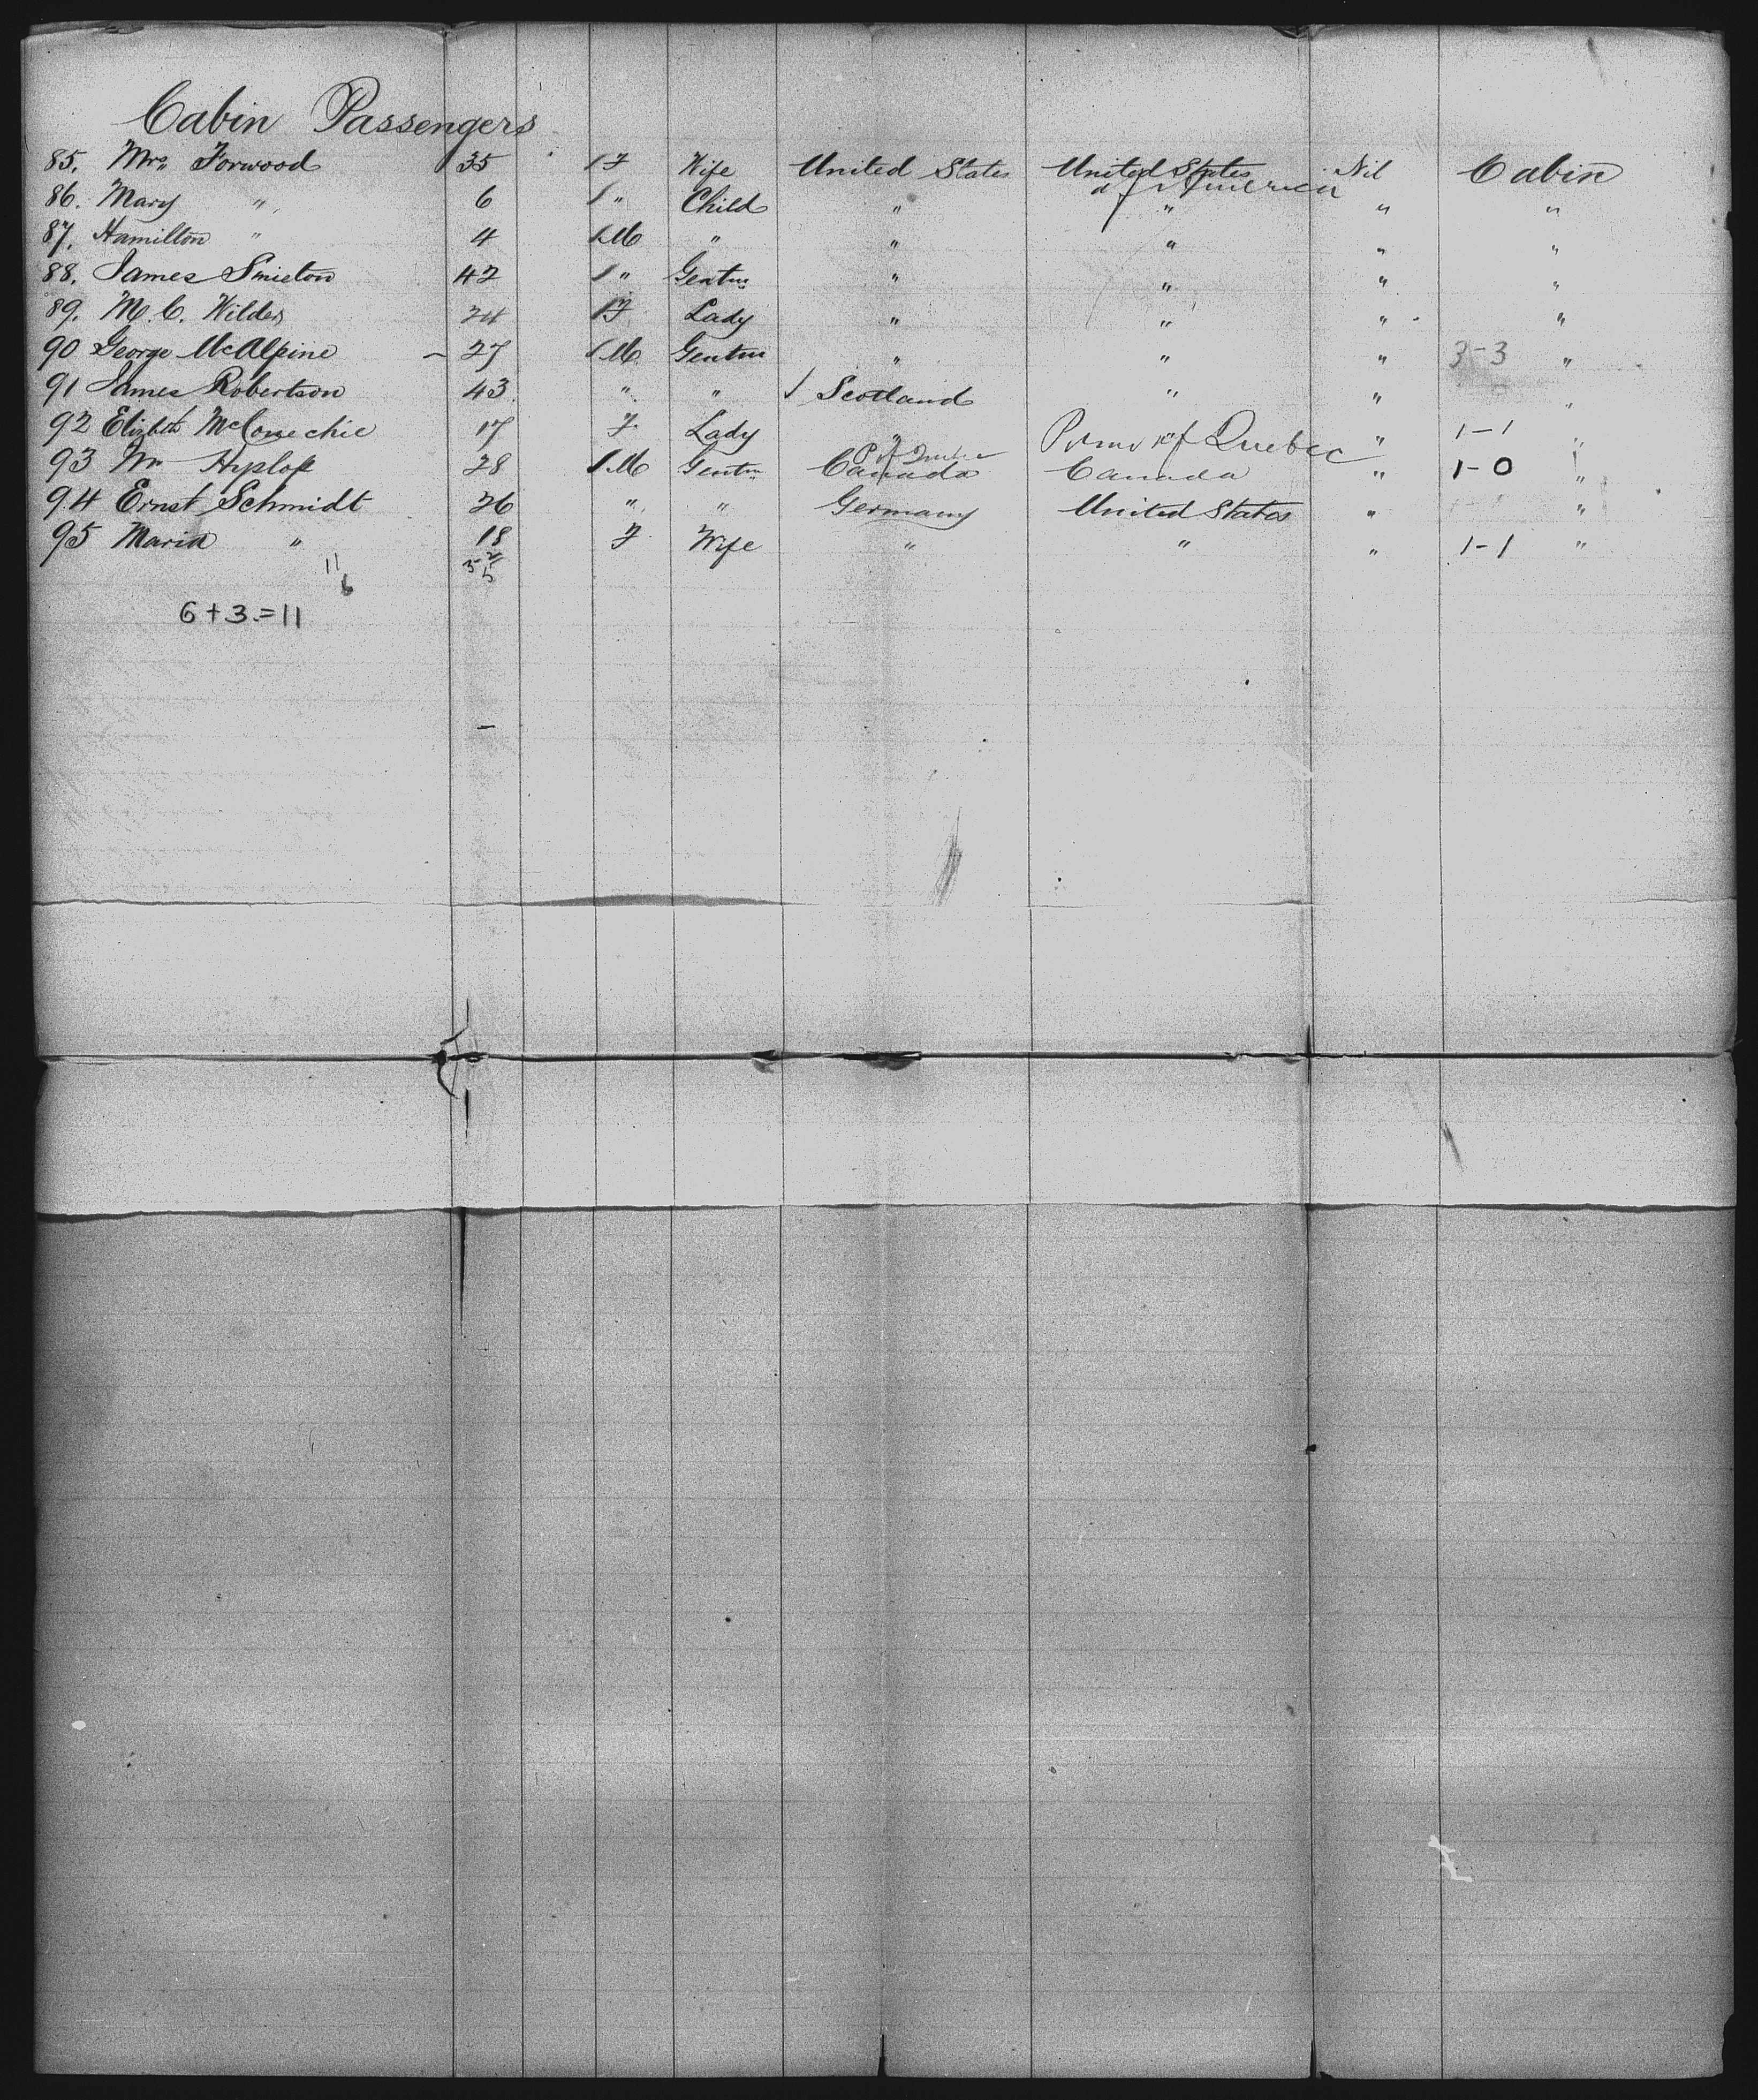 Cabin Passengers
85. Mrs. Forwood 35 1 F Wife United States United States of America Nil Cabin
86. Mary " 6 1 " Child " " " "
87. Hamilton " 4 1 M " " " " "
88. James Smieton 42 1 " Gentm " " " "
89. M. C. Wilder 24 1 F Lady " " " "
90 George McAlpine 27 1 M Gentm " " " 3-3 "
91 James Robertson 43 " " / Scotland " " "
92 Elizbth McConechie 17 F Lady " Prov of Quebec " 1-1 "
93 Wm Hyslop 28 1 M Gentm Canada Canada " 1-0 "
94 Ernst Schmidt 26 " " Germany United States " "
95 Maria " 18 F Wife " " " 1-1 "
11
6
6+3.=11